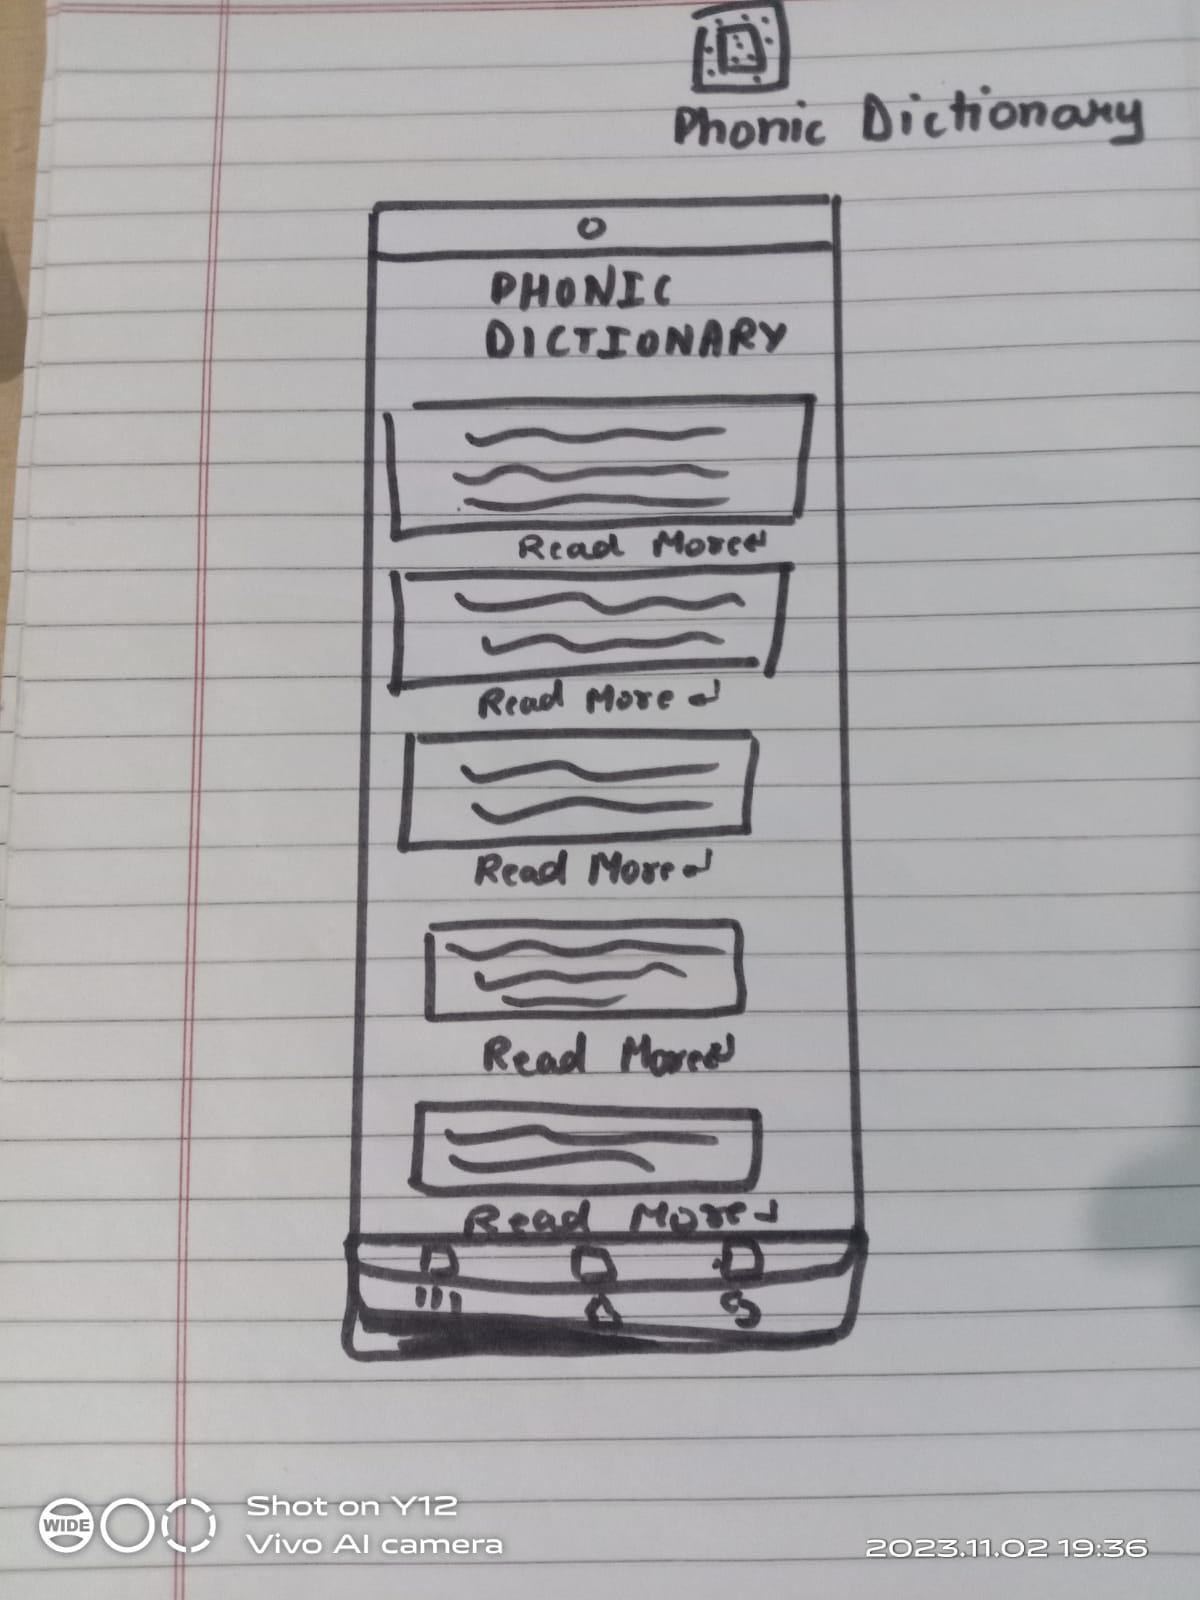 Phonic Dictionary
PHONIC
DICTIONARY
Read More
Read More
Read More
Read More
Read More
WIDE
Shot on Y12
Vivo AI camera
2023.11.02 19:36